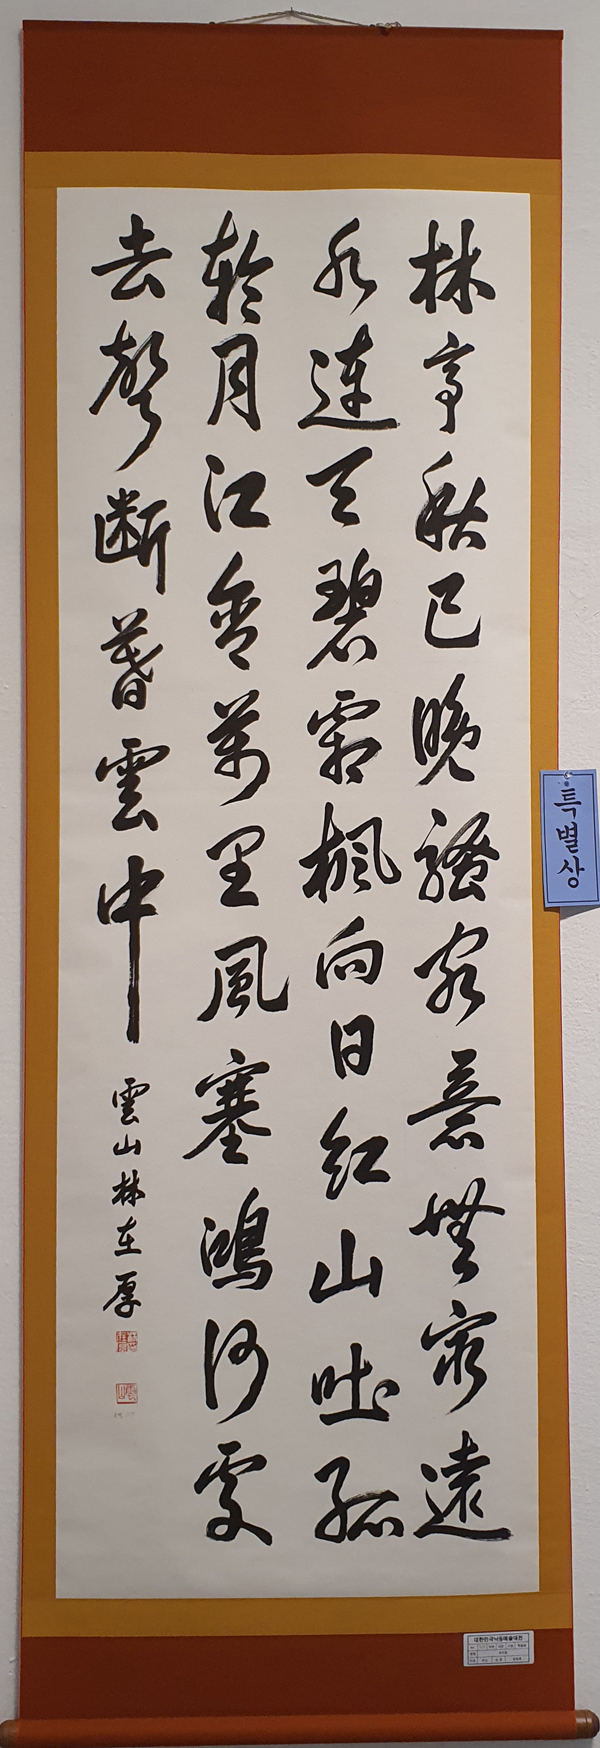 林亭秋已晚騷客意無窮遠
水連天碧霜楓向日紅山吐孤
輪月江含萬里風塞鴻何處
去聲斷暮雲中
雲山林在厚
특별상
대한민국낙동예술대전